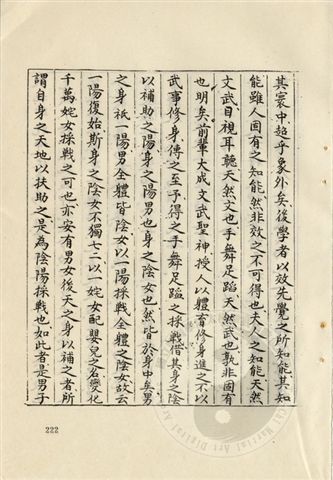 其寰中超乎象外矣後學者以效先覺之所知能其知
能雖人固有之知能然非效之不可得也夫人之知能天然
文武目視耳聽天然文也手舞足蹈天然武也孰非固有
也明矣前輩大成文武聖神授人以體育修身進之不以
武事修身傳之至予得之手舞足蹈之採戰借其身之陰
以補助之陽身之陽男也身之陰女也然皆於身中矣男
之身祇一陽男全體皆陰女以一陽採戰全體之陰女故云
一陽復始斯身之陰女不獨七二以一姹女配嬰兒之名變化
千萬姹女採戰之可也亦安有男女後天之身以補之者所
謂自身之天地以扶助之是為陰陽採戰也如此者是男子
222